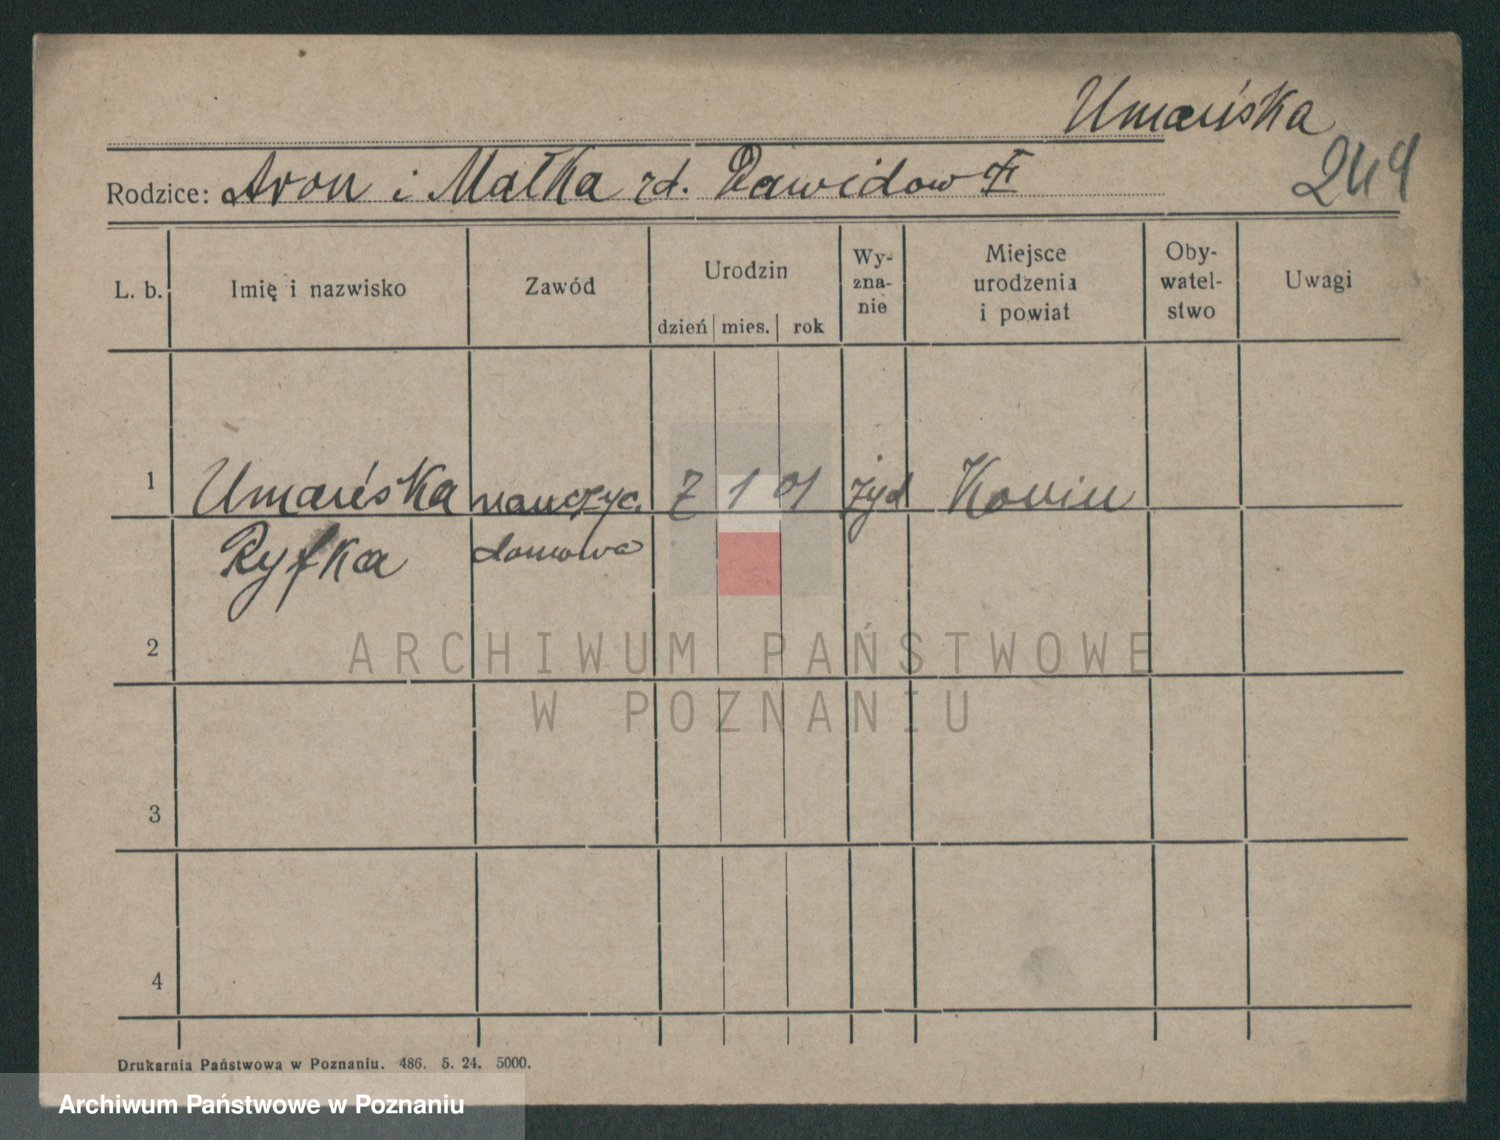 Umańska
Rodzice: Aron i Małka zd. Dawidow
244
L. b. Imię i nazwisko Zawód Urodzin Wy-zna-nie Miejsce urodzenia i powiat Oby-watel-stwo Uwagi
dzień mies. rok
1 Umańska nauczyc. 7 1 01 żyd Konin
Ryfka domowa
2
ARCHIWUM PAŃSTWOWE
W POZNANIU
3
4
Drukarnia Państwowa w Poznaniu. 486. 5. 24. 5000.
Archiwum Państwowe w Poznaniu